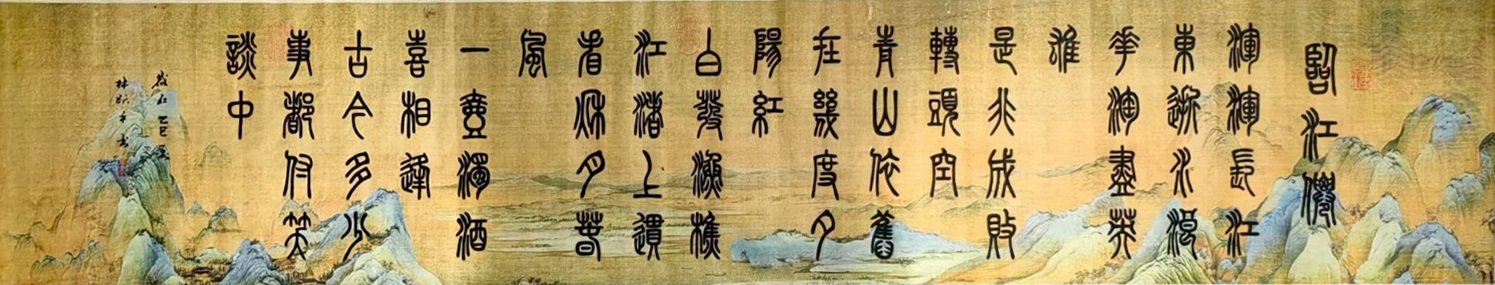 臨江僊
滾滾長江
東逝水浪
華淘盡英
雄
是非成敗
轉頭空
青山依舊
在幾度夕
陽紅
白發漁樵
江渚上慣
看秋月春
風
一壺濁酒
喜相逢
古今多少
事都付笑
談中
歲在乙巳夏
林 平書